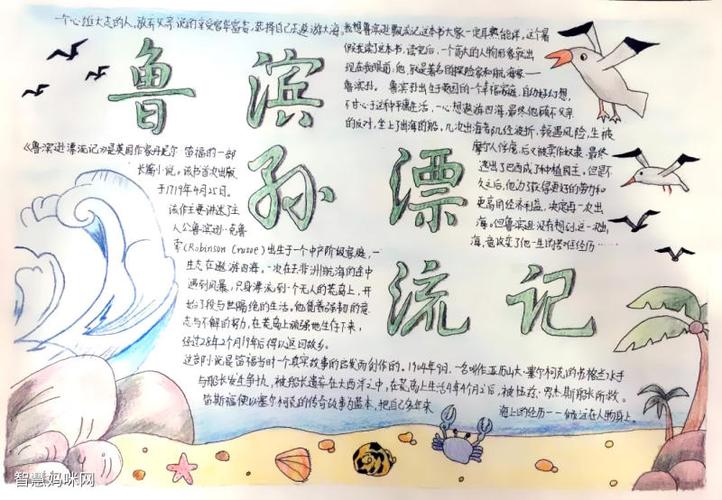 一个心拥大志的人,放弃父亲说的享受富华富贵,选择自己去遨游大海,
我想鲁滨逊飘流记这本书大家一定耳熟能详,这个暑
假我读了这本书,读完后,一个高大的人物形象就出
现在我眼前,他,就是著名的探险家和航海家——
鲁滨孙。鲁滨孙出生于英国的一个幸福家庭,自幼好幻想,
不甘心于这种平庸生活,一心想遨游四海,最终他顾不父亲
的反对,坐上了出海的船。几次出海都历经波折,频遇风险,生被
摩尔人俘虏,后又被卖作奴隶,最终
逃出了巴西成了种植园主。但是不
久之后,他为了获得更好的劳力和
更高的经济利益,决定再一次出
海。但鲁滨逊没有想到这一次出
海,竟改变了他一生的苦难经历……
鲁滨
孙漂
流记
《鲁滨逊漂流记》是英国作家丹尼尔·笛福的一部
长篇小说。该书首次出版
于1719年4月25日。
该作主要讲述了主
人公鲁滨逊·克鲁
索(Robinson Crusoe)出生于一个中产阶级家庭,一
生志在遨游四海。一次在去非洲航海的途中
遇到风暴,只身漂流到一个无人的荒岛上,开
始了段与世隔绝的生活。他凭着强韧的意
志与不懈的努力,在荒岛上顽强地生存下来,
经过28年2个月19天后得以返回故乡。
这部小说是笛福受当时一个真实故事的启发而创作的。1704年9月,一名叫亚历山大·塞尔柯克的苏格兰水手
与船长发生争执,被船长遗弃在大西洋之中,在荒岛上生活4年4个月之后,被伍兹·罗杰斯船长所救。
笛斯福便以塞尔柯克的传奇故事为蓝本,把自己多年来
海上的经历——倾注在人物身上。
智慧妈咪网